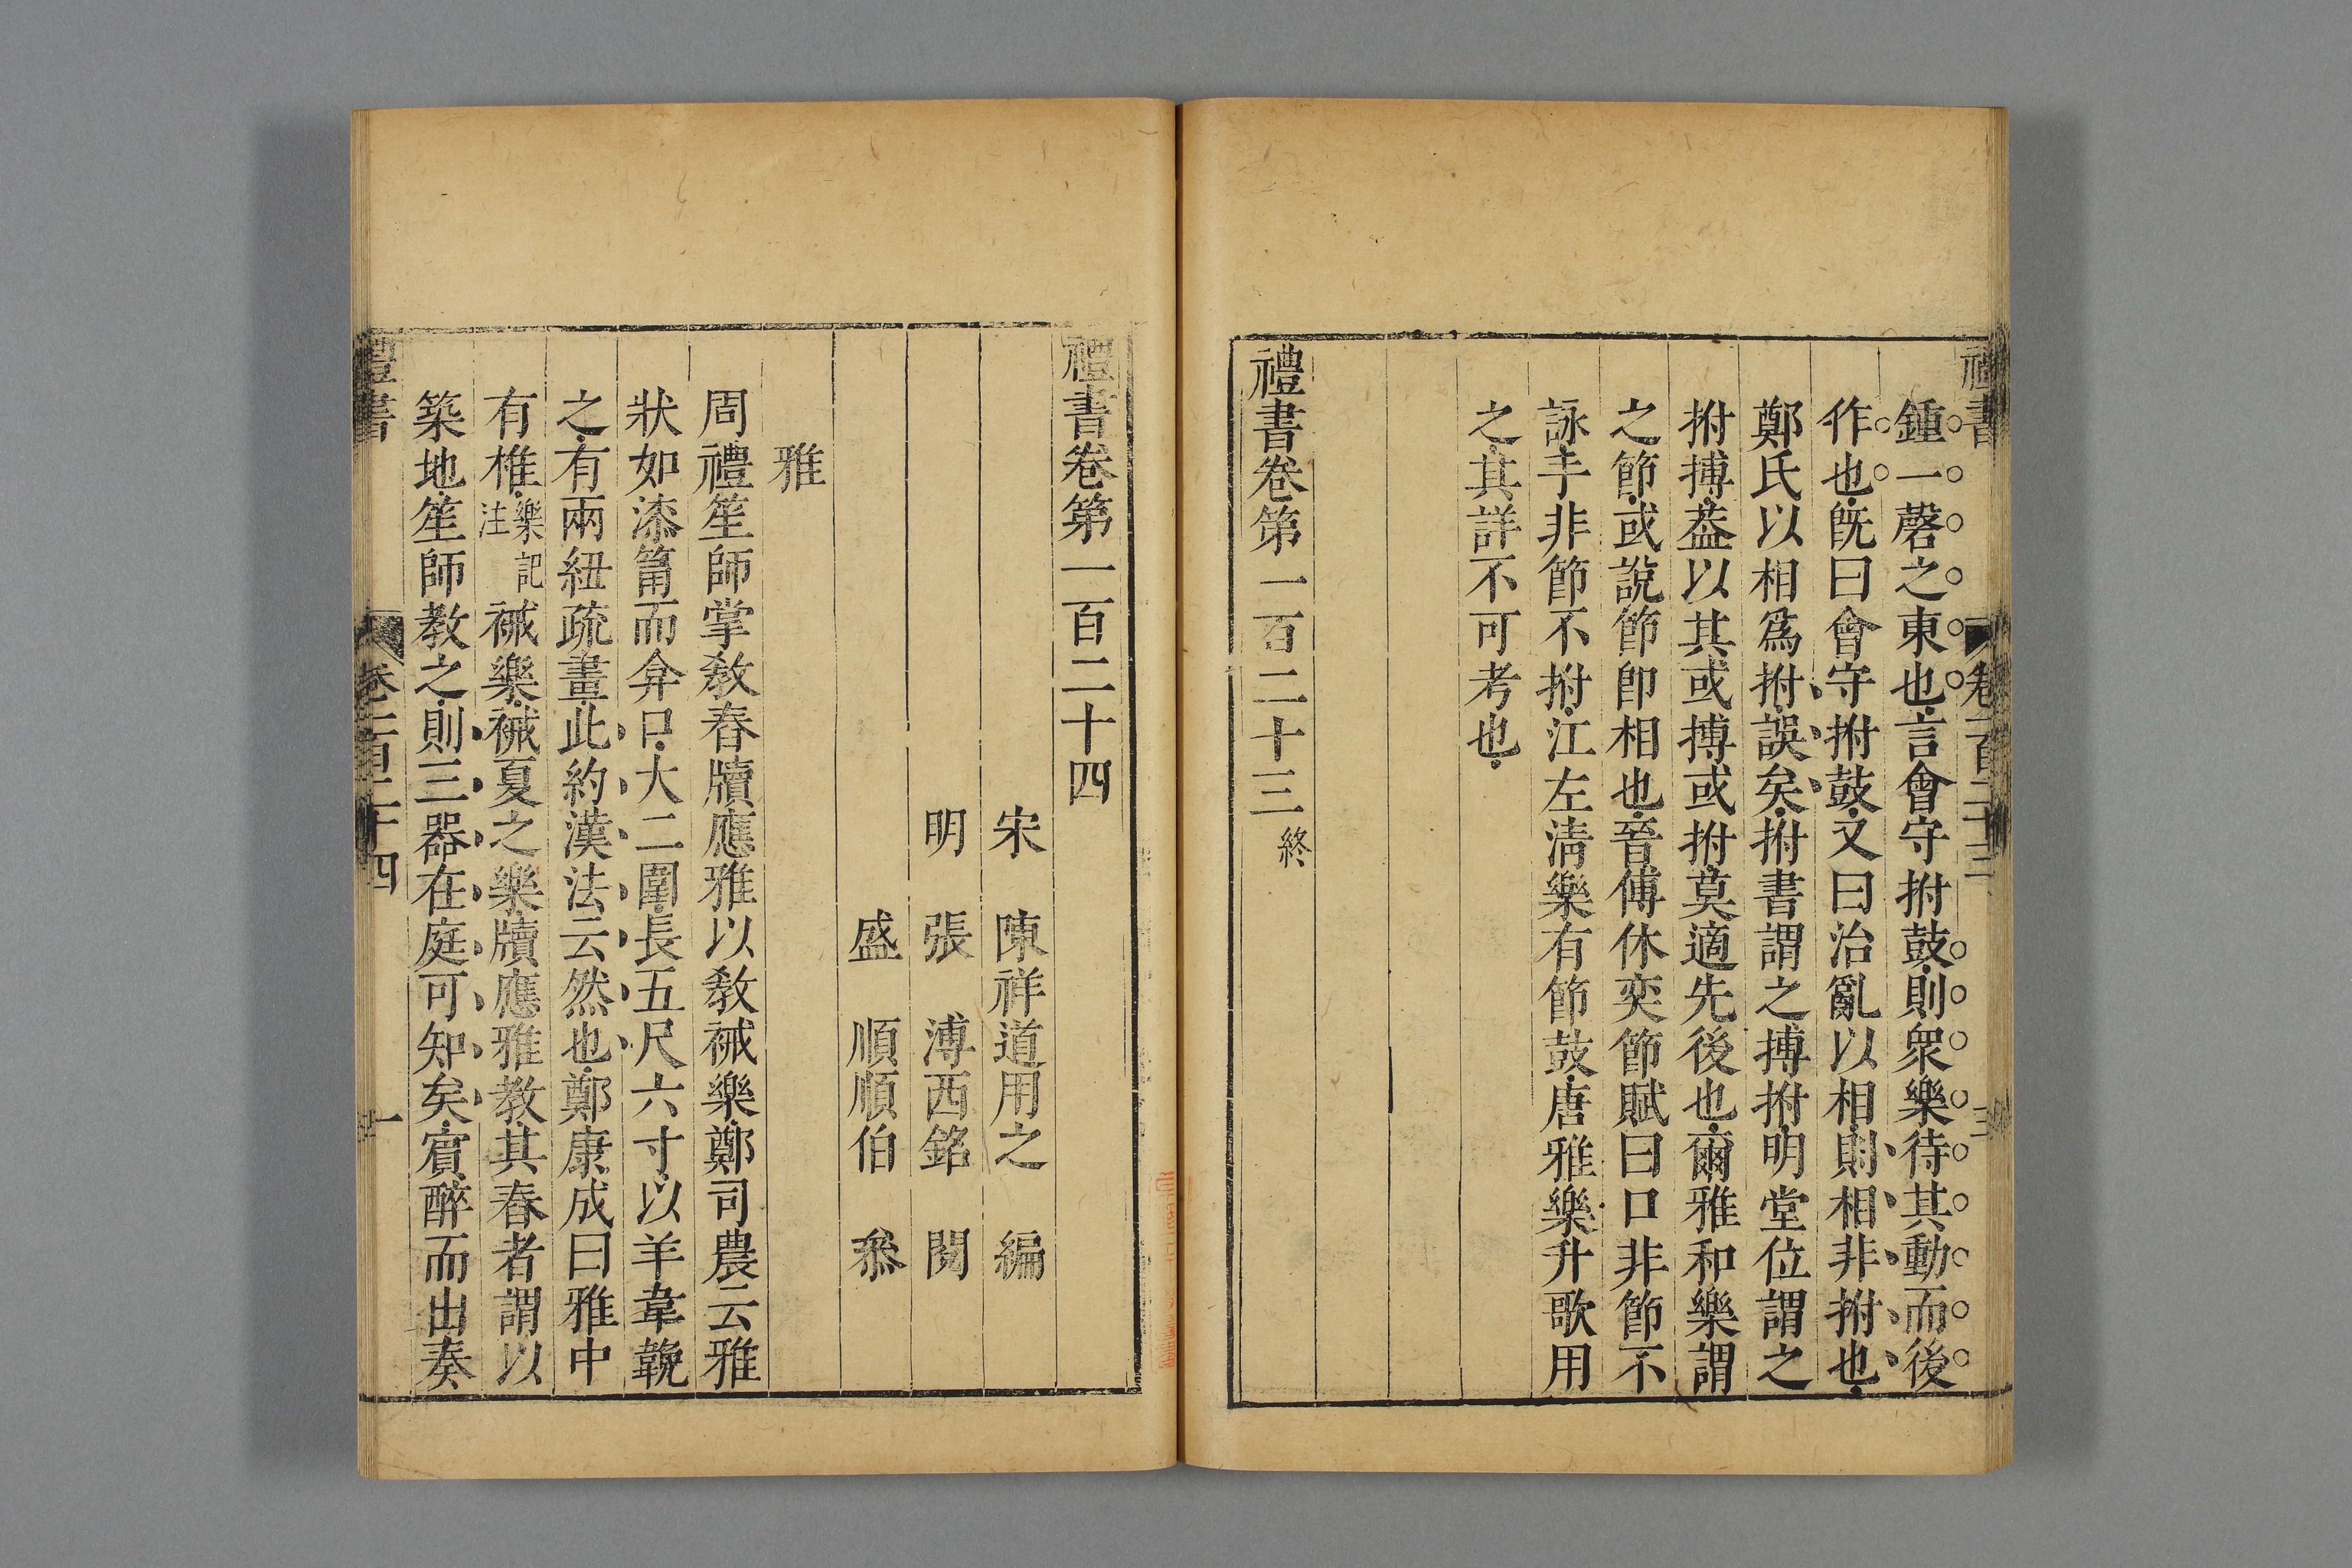 鍾一磬之東也言會守拊鼓則眾樂待其動而後
作也旣曰會守拊鼓又曰治亂以相則相非拊也
鄭氏以相爲拊誤矣拊書謂之搏拊明堂位謂之
拊搏葢以其或搏或拊莫適先後也爾雅和樂謂
之節或說節卽相也晉傅休奕節賦曰口非節不
詠手非節不拊江左淸樂有節鼓唐雅樂升歌用
之其詳不可考也
禮書卷第一百二十三終
禮書卷第一百二十四
宋 陳祥道用之 編
明 張 溥西銘 閱
盛 順順伯 叅
雅
周禮笙師掌敎舂牘應雅以敎祴樂鄭司農云雅
狀如漆筩而弇口大二圍長五尺六寸以羊韋鞔
之有兩紐疏畫此約漢法云然也鄭康成曰雅中
有椎樂記注祴樂祴夏之樂牘應雅教其舂者謂以
築地笙師教之則三器在庭可知矣賔醉而出奏
禮書 卷一百二十四 一